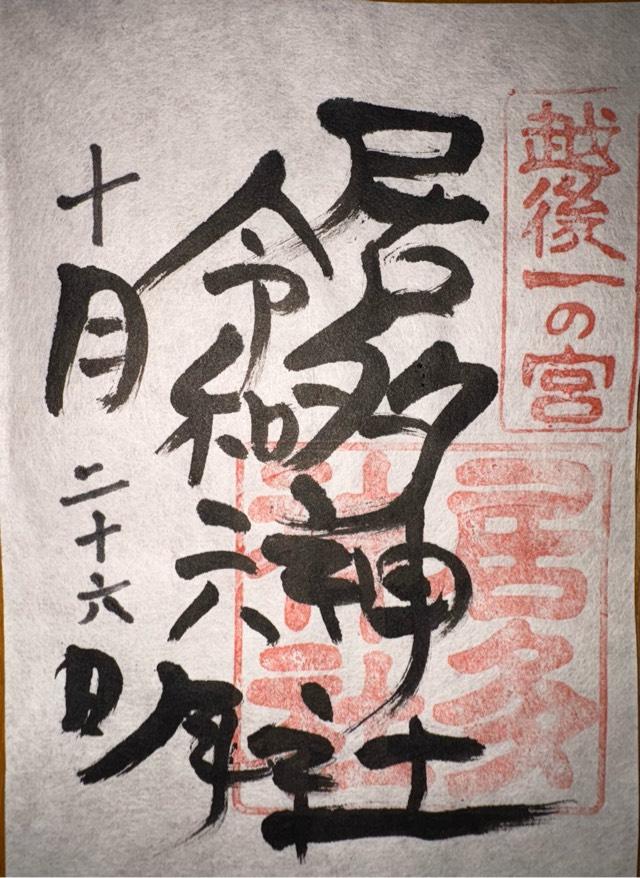 越後一の宮
居多神社
居多神社
令和六年
十月二十六日